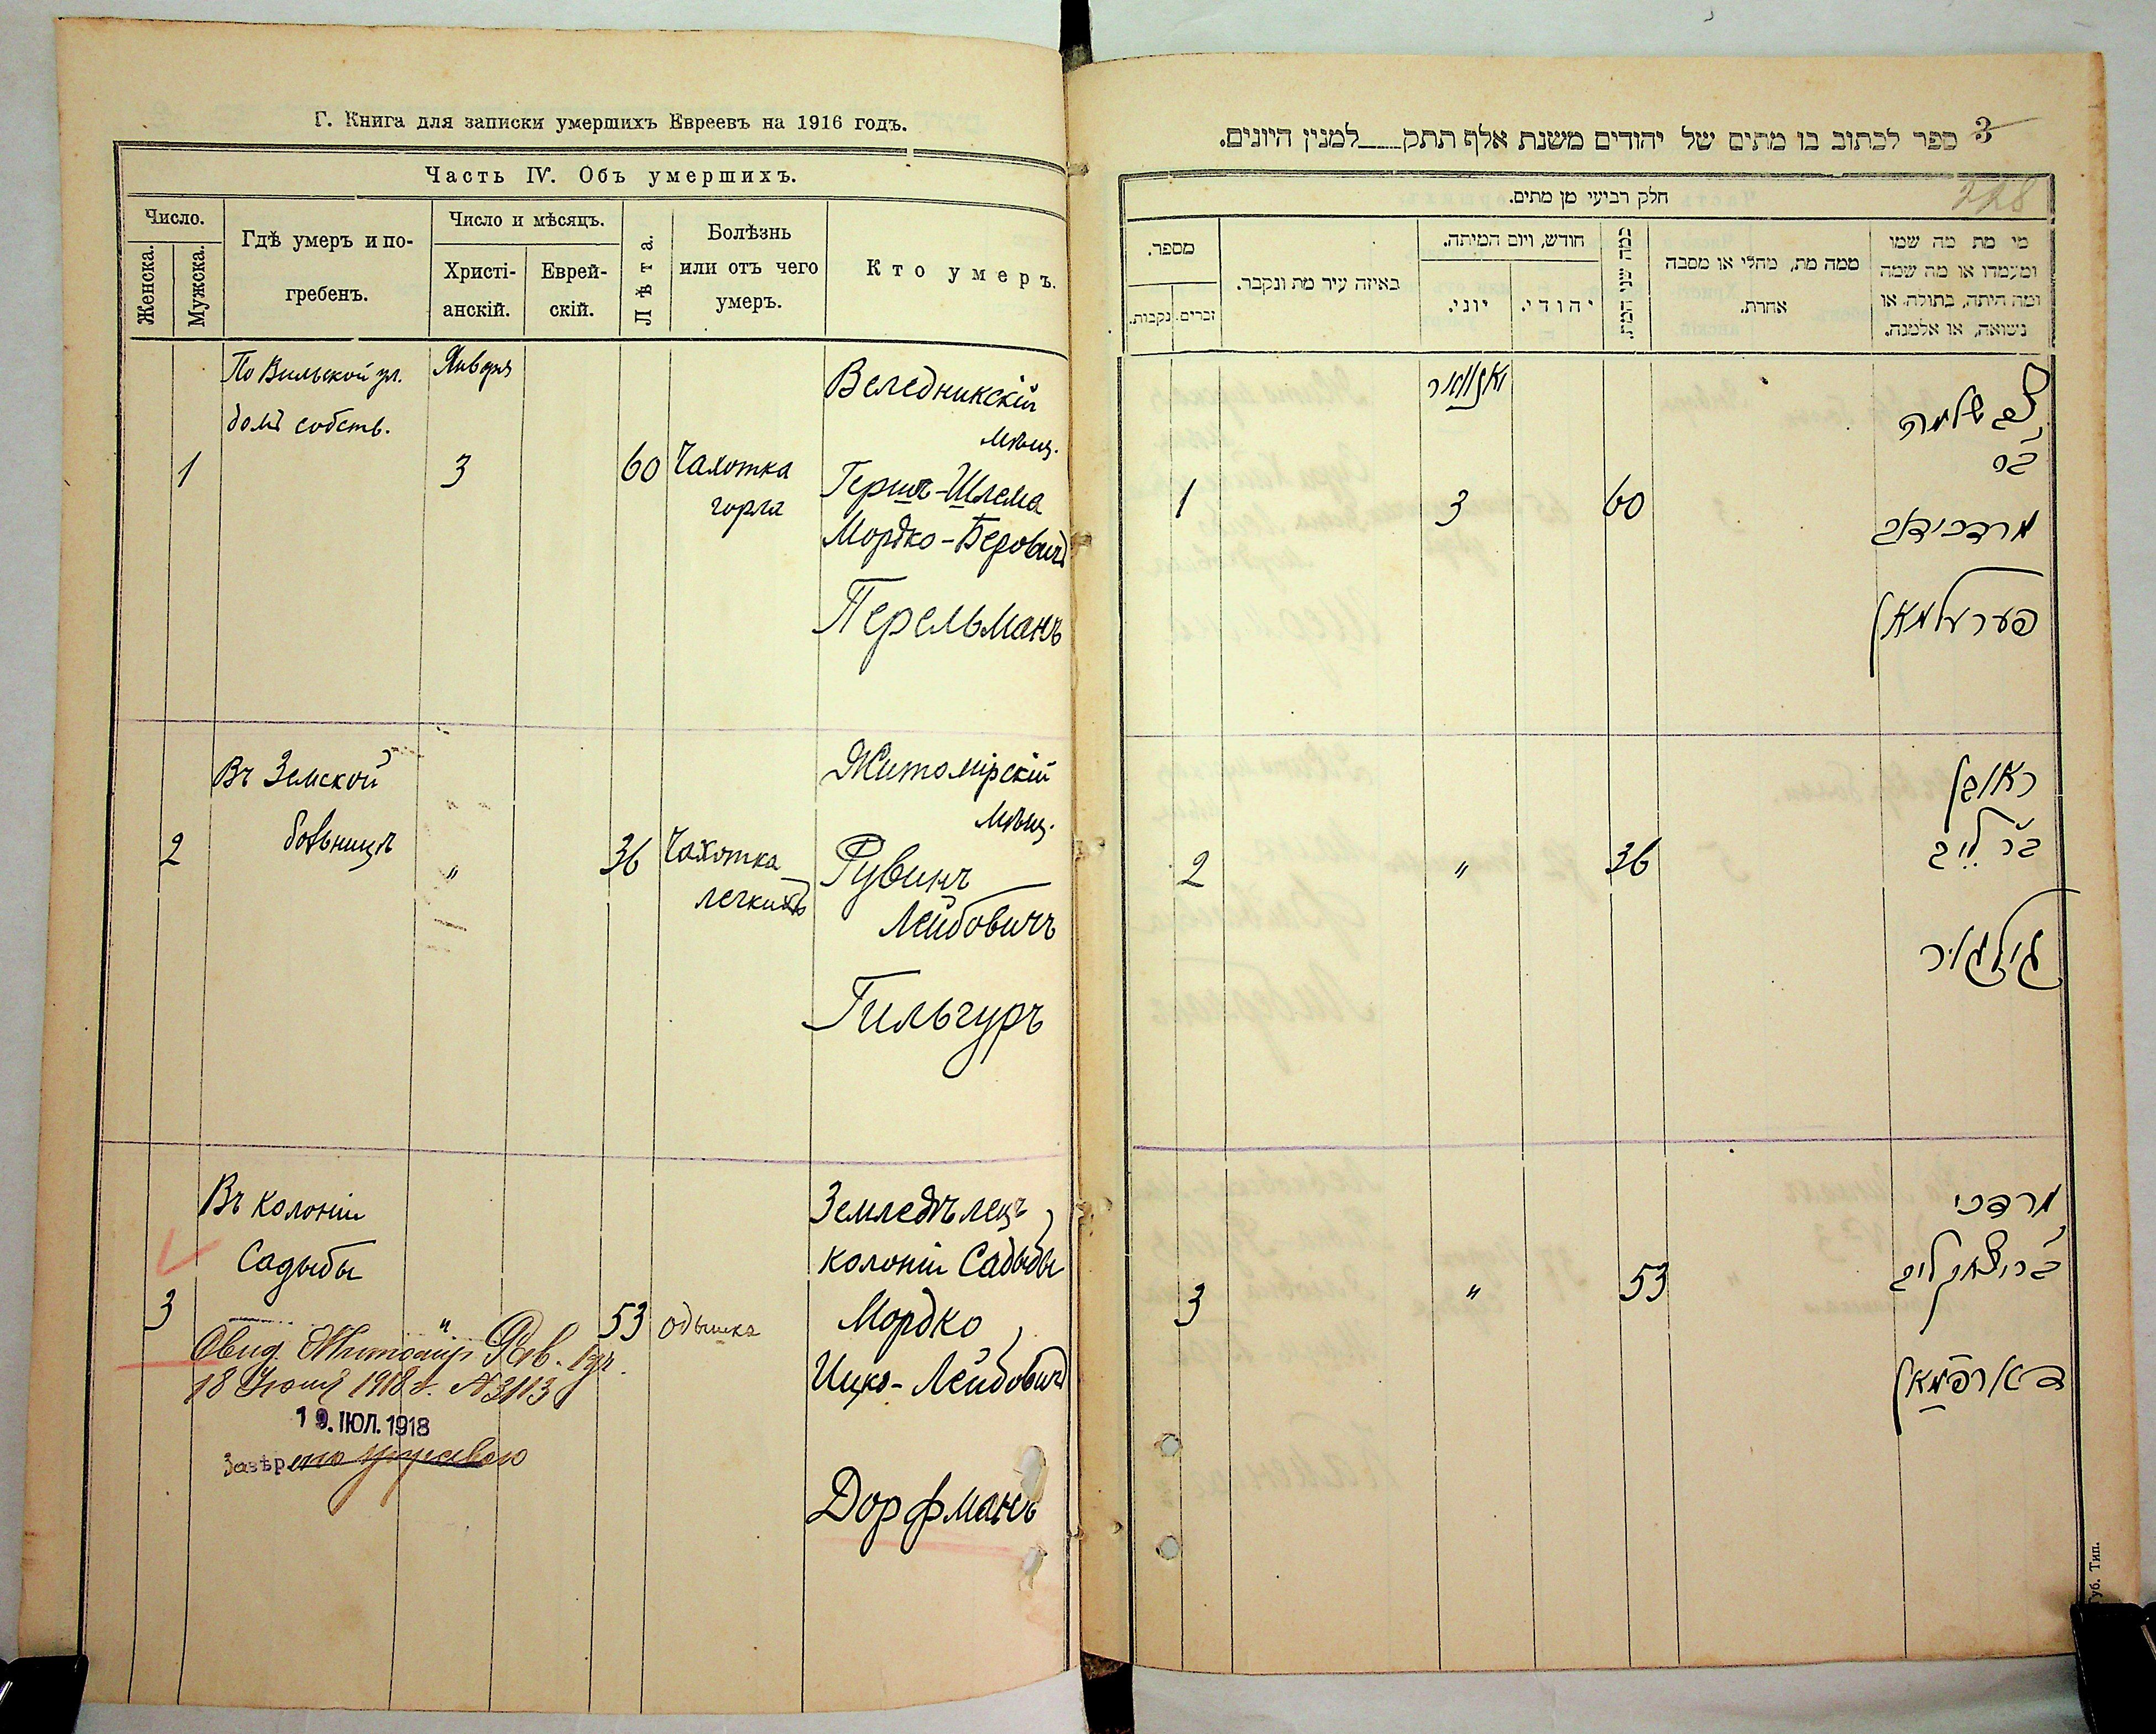 Г. Книга для записки умершихъ Евреевъ на 1916 годъ.
Часть IV. Объ умершихъ.
Число.
Женска.
Мужска.
Гдѣ умеръ и по-
гребенъ.
Число и мѣсяцъ.
Христі-
анскій.
Еврей-
скій.
Лѣта.
Болѣзнь
или отъ чего
умеръ.
Кто умеръ.
По Вильской ул.
домъ собств.
Января
1
3
60
Чахотка
горла
Веледникскій
мѣщ.
Гершъ-Шлема
Мордко-Беровичъ
Перельманъ
Въ Земской
больницѣ
2
"
36
Чахотка
легкихъ
Житомірскій
мѣщ.
Рувинъ
Лейбовичъ
Гильгуръ
Въ колоніи
Садыбы
3
"
53
одышка
Земледѣлецъ
колоніи Садыбы
Мордко
Ицко-Лейбовичъ
Дорфманъ
Свид. Житомір.
18 Іюля 1918 г. № 3113
19. ІЮЛ. 1918
3
ספר לכתוב בו מתים של יהודים משנת אלף תתק למנין היונים.
228
חלק רביעי מן מתים.
מי מת מה שמו
ומעמדו או מה שמה
ומה היתה, בתולה או
נישואה, או אלמנה.
ממה מת, מחלי או מסבה
אחרת.
כמה שני המת.
חודש, ויום המיתה.
יהודי.
יוני.
באיזה עיר מת ונקבר.
מספר.
זכרים.
נקבות.
יאנוואר
שלמה
בר
מרדכי דוב
פערעלמאן
60
3
1
ראובן
בר לייב
גילגור
36
"
2
מרדכי
בר יצחק לייב
דארפמאן
53
"
3
Губ. Тип.